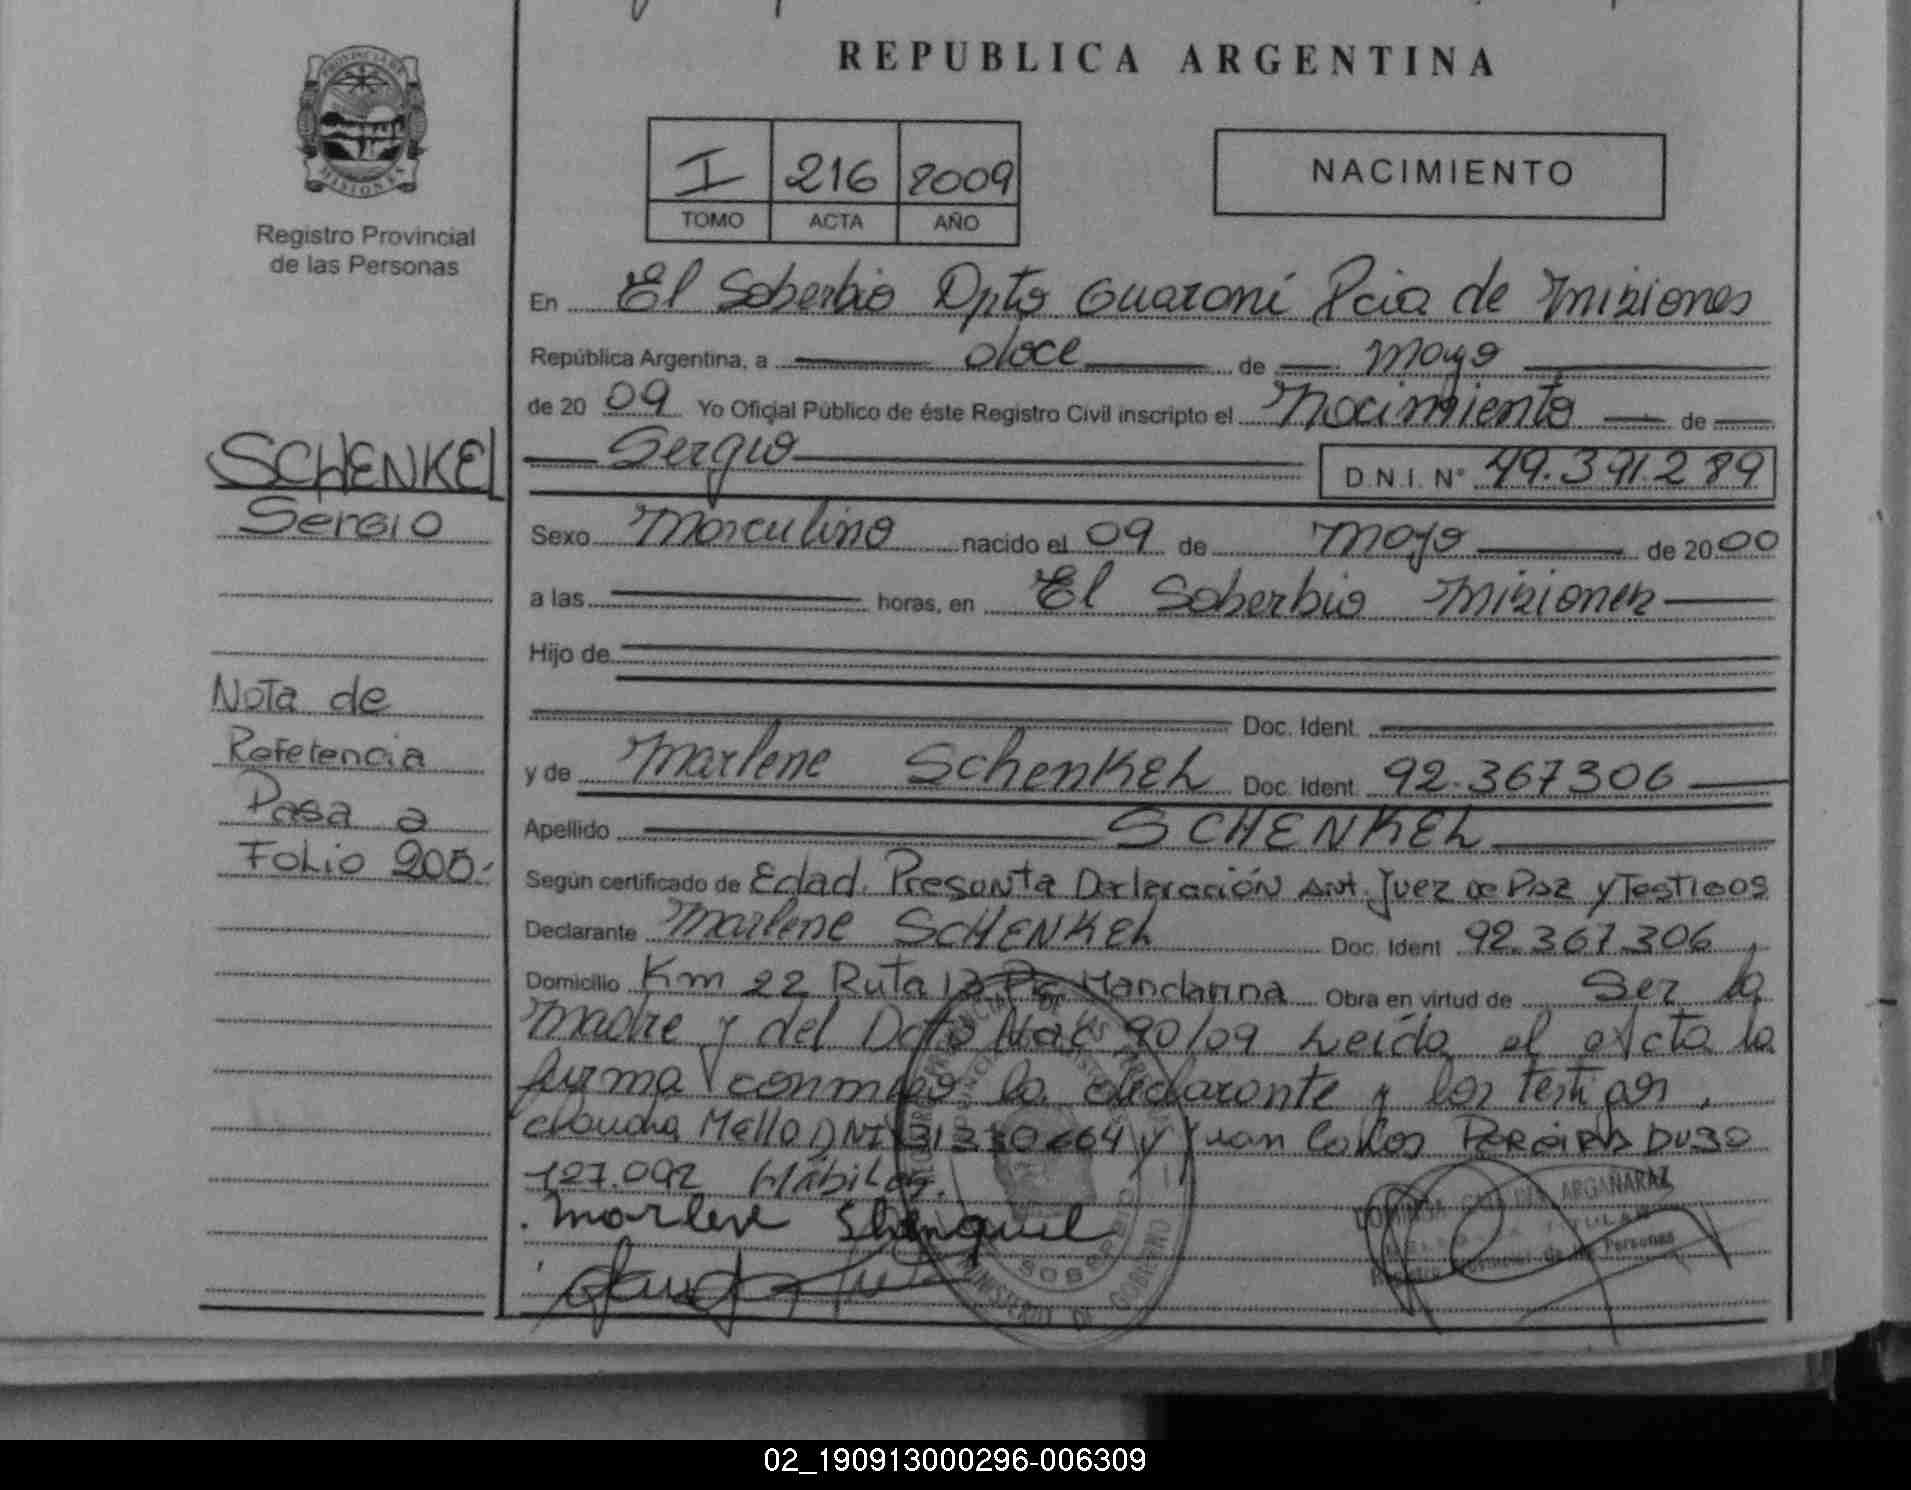 REPUBLICA ARGENTINA
PROVINCIA DE
MISIONES
Registro Provincial
de las Personas
I 216 2009
TOMO ACTA AÑO
NACIMIENTO
En El Soberbio Dpto Guaraní Pcia de Misiones
República Argentina, a doce de Mayo
de 20 09 Yo Oficial Público de éste Registro Civil inscripto el Nacimiento de
Sergio D.N.I. Nº 49.391.289
Sexo Masculino nacido el 09 de Mayo de 20 00
a las horas, en El Soberbio Misiones
Hijo de
Doc. Ident.
y de Marlene Schenkel Doc. Ident. 92.367306
Apellido SCHENKEL
Según certificado de Edad. Presunta Declaración Ant. Juez de Paz y Testigos
Declarante Marlene SCHENKEL Doc. Ident 92.367.306,
Domicilio Km 22 Ruta 13 Pe Mandarina Obra en virtud de Ser la
Madre y del Dcto Nac 90/09 Leída el acta la
firma conmigo la declarante y los testigos,
Claudia Mello DNI y Juan Carlos PEREIRA
127.092 Hábiles.
Marlene Shenquel
SCHENKEL
Sergio
Nota de
Referencia
Pasa a
Folio 205.
SOBERBIO
MINISTERIO DE GOBIERNO
ARGAÑARAZ
TITULAR
de las Personas
02_190913000296-006309